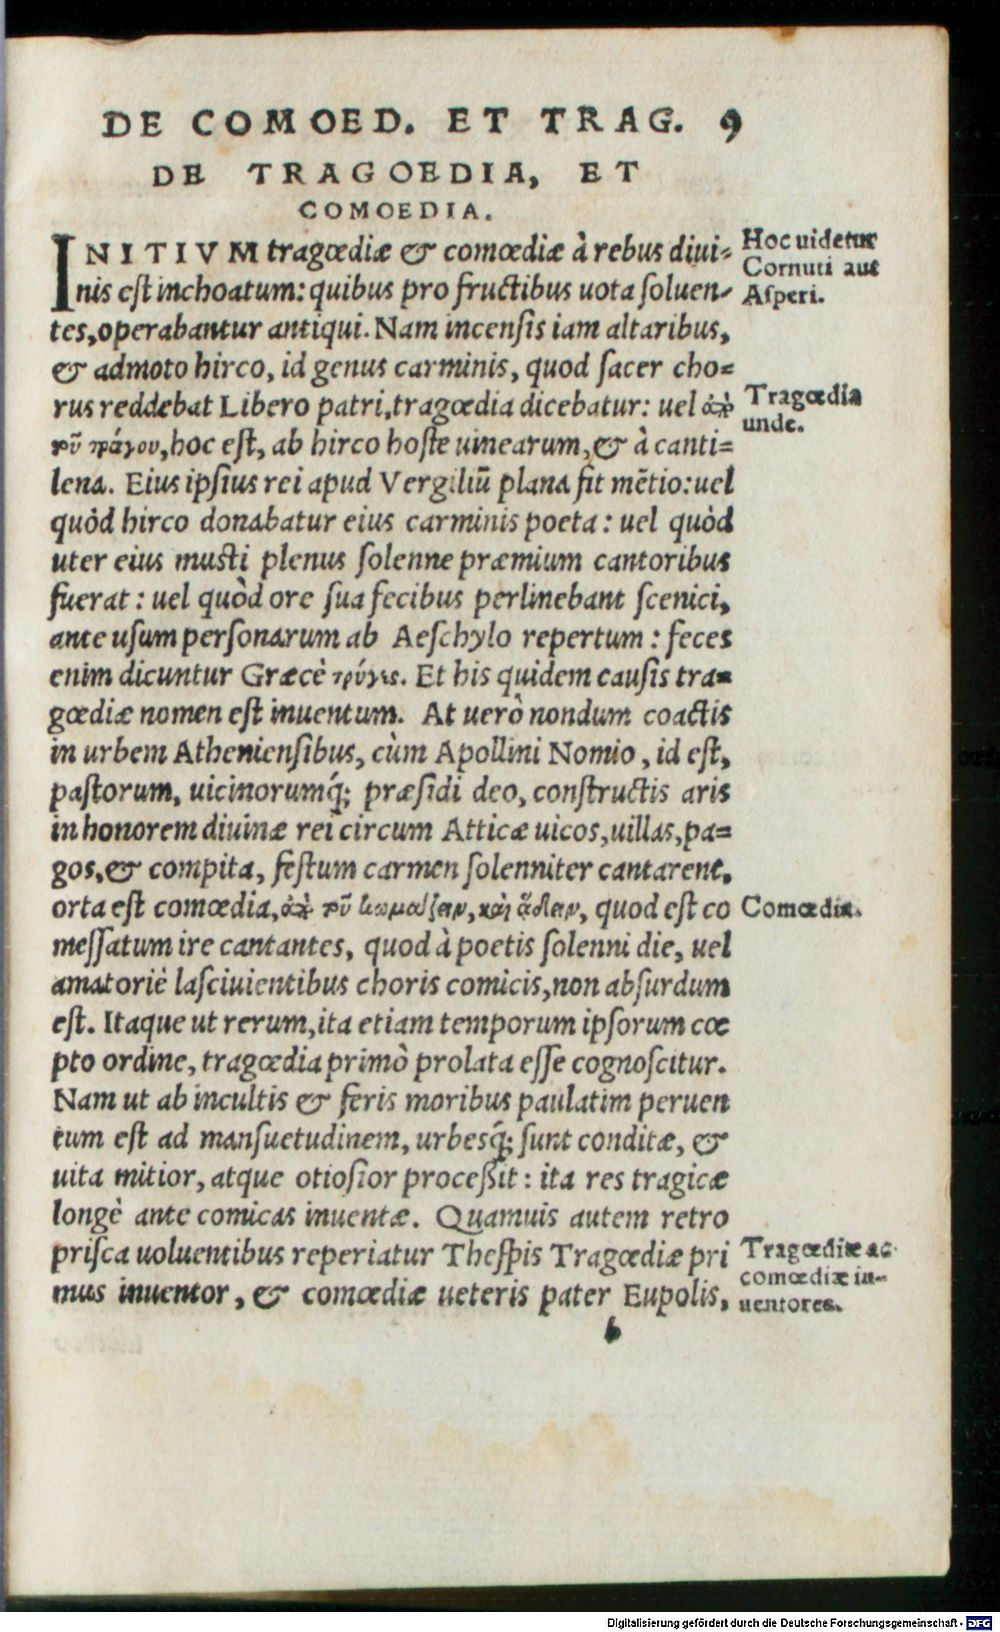 DE COMOED. ET TRAG. 9
DE TRAGOEDIA, ET
COMOEDIA.
INITIVM tragœdiæ & comœdiæ à rebus diui-
nis est inchoatum: quibus pro fructibus uota soluen-
tes, operabantur antiqui. Nam incensis iam altaribus,
& admoto hirco, id genus carminis, quod sacer cho-
rus reddebat Libero patri, tragœdia dicebatur: uel ἀπὸ
τοῦ τράγου, hoc est, ab hirco hoste uinearum, & à canti-
lena. Eius ipsius rei apud Vergiliũ plana fit mẽtio: uel
quòd hirco donabatur eius carminis poeta: uel quòd
uter eius musti plenus solenne præmium cantoribus
fuerat: uel quòd ore sua fecibus perlinebant scenici,
ante usum personarum ab Aeschylo repertum: feces
enim dicuntur Græcè τρύγες. Et his quidem causis tra-
gœdiæ nomen est inuentum. At uerò nondum coactis
in urbem Atheniensibus, cùm Apollini Nomio, id est,
pastorum, uicinorumq́; præsidi deo, constructis aris
in honorem diuinæ rei circum Atticæ uicos, uillas, pa-
gos, & compita, festum carmen solenniter cantarent,
orta est comœdia, ἀπὸ τοῦ κωμάζειν, καὶ ᾄδειν, quod est co
messatum ire cantantes, quod à poetis solenni die, uel
amatoriè lasciuientibus choris comicis, non absurdum
est. Itaque ut rerum, ita etiam temporum ipsorum cœ
pto ordine, tragœdia primò prolata esse cognoscitur.
Nam ut ab incultis & feris moribus paulatim peruen
tum est ad mansuetudinem, urbesq́; sunt conditæ, &
uita mitior, atque otiosior proceßit: ita res tragicæ
longè ante comicas inuentæ. Quamuis autem retro
prisca uoluentibus reperiatur Thespis Tragœdiæ pri
mus inuentor, & comœdiæ ueteris pater Eupolis,
b
Hoc uidetur
Cornuti aut
Asperi.
Tragœdia
unde.
Comœdia.
Tragœdiæ ac
comœdiæ in-
uentores.
Digitalisierung gefördert durch die Deutsche Forschungsgemeinschaft - DFG